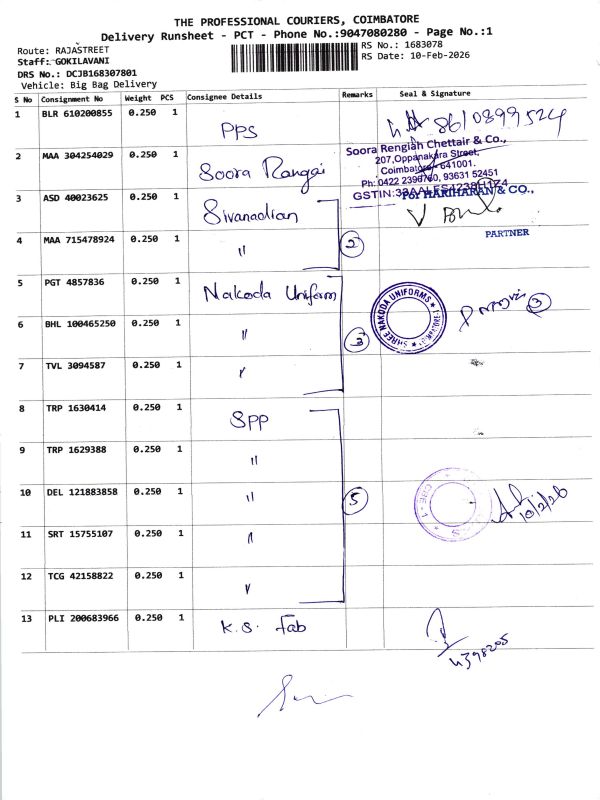 THE PROFESSIONAL COURIERS, COIMBATORE
Delivery Runsheet - PCT - Phone No.:9047080280 - Page No.:1
Route: RAJASTREET
RS No.: 1683078
Staff: GOKILAVANI
RS Date: 10-Feb-2026
DRS No.: DCJB168307801
Vehicle: Big Bag Delivery
S No Consignment No Weight PCS Consignee Details Remarks Seal & Signature
1 BLR 610200855 0.250 1 PPS 8610899524
2 MAA 304254029 0.250 1 Soora Rangai
Soora Rengiah Chettair & Co.,
207,Oppanakara Street,
Coimbatore - 641001.
Ph: 0422 2396760, 93631 52451
3 ASD 40023625 0.250 1 Sivanadian
For HARIHARAN & CO.,
4 MAA 715478924 0.250 1 " 2
PARTNER
5 PGT 4857836 0.250 1 Nakoda Uniform
SHREE NAKODA UNIFORMS
3
6 BHL 100465250 0.250 1 " 3
7 TVL 3094587 0.250 1 "
8 TRP 1630414 0.250 1 SPP
9 TRP 1629388 0.250 1 "
10 DEL 121883858 0.250 1 " 5
CBE - 1
10/2/26
11 SRT 15755107 0.250 1 "
12 TCG 42158822 0.250 1 "
13 PLI 200683966 0.250 1 K.S. Fab